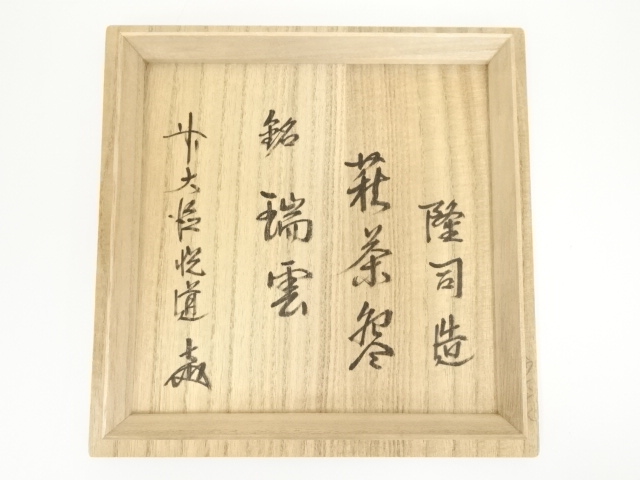 隆司造
萩茶盌
銘 瑞雲
大悦道